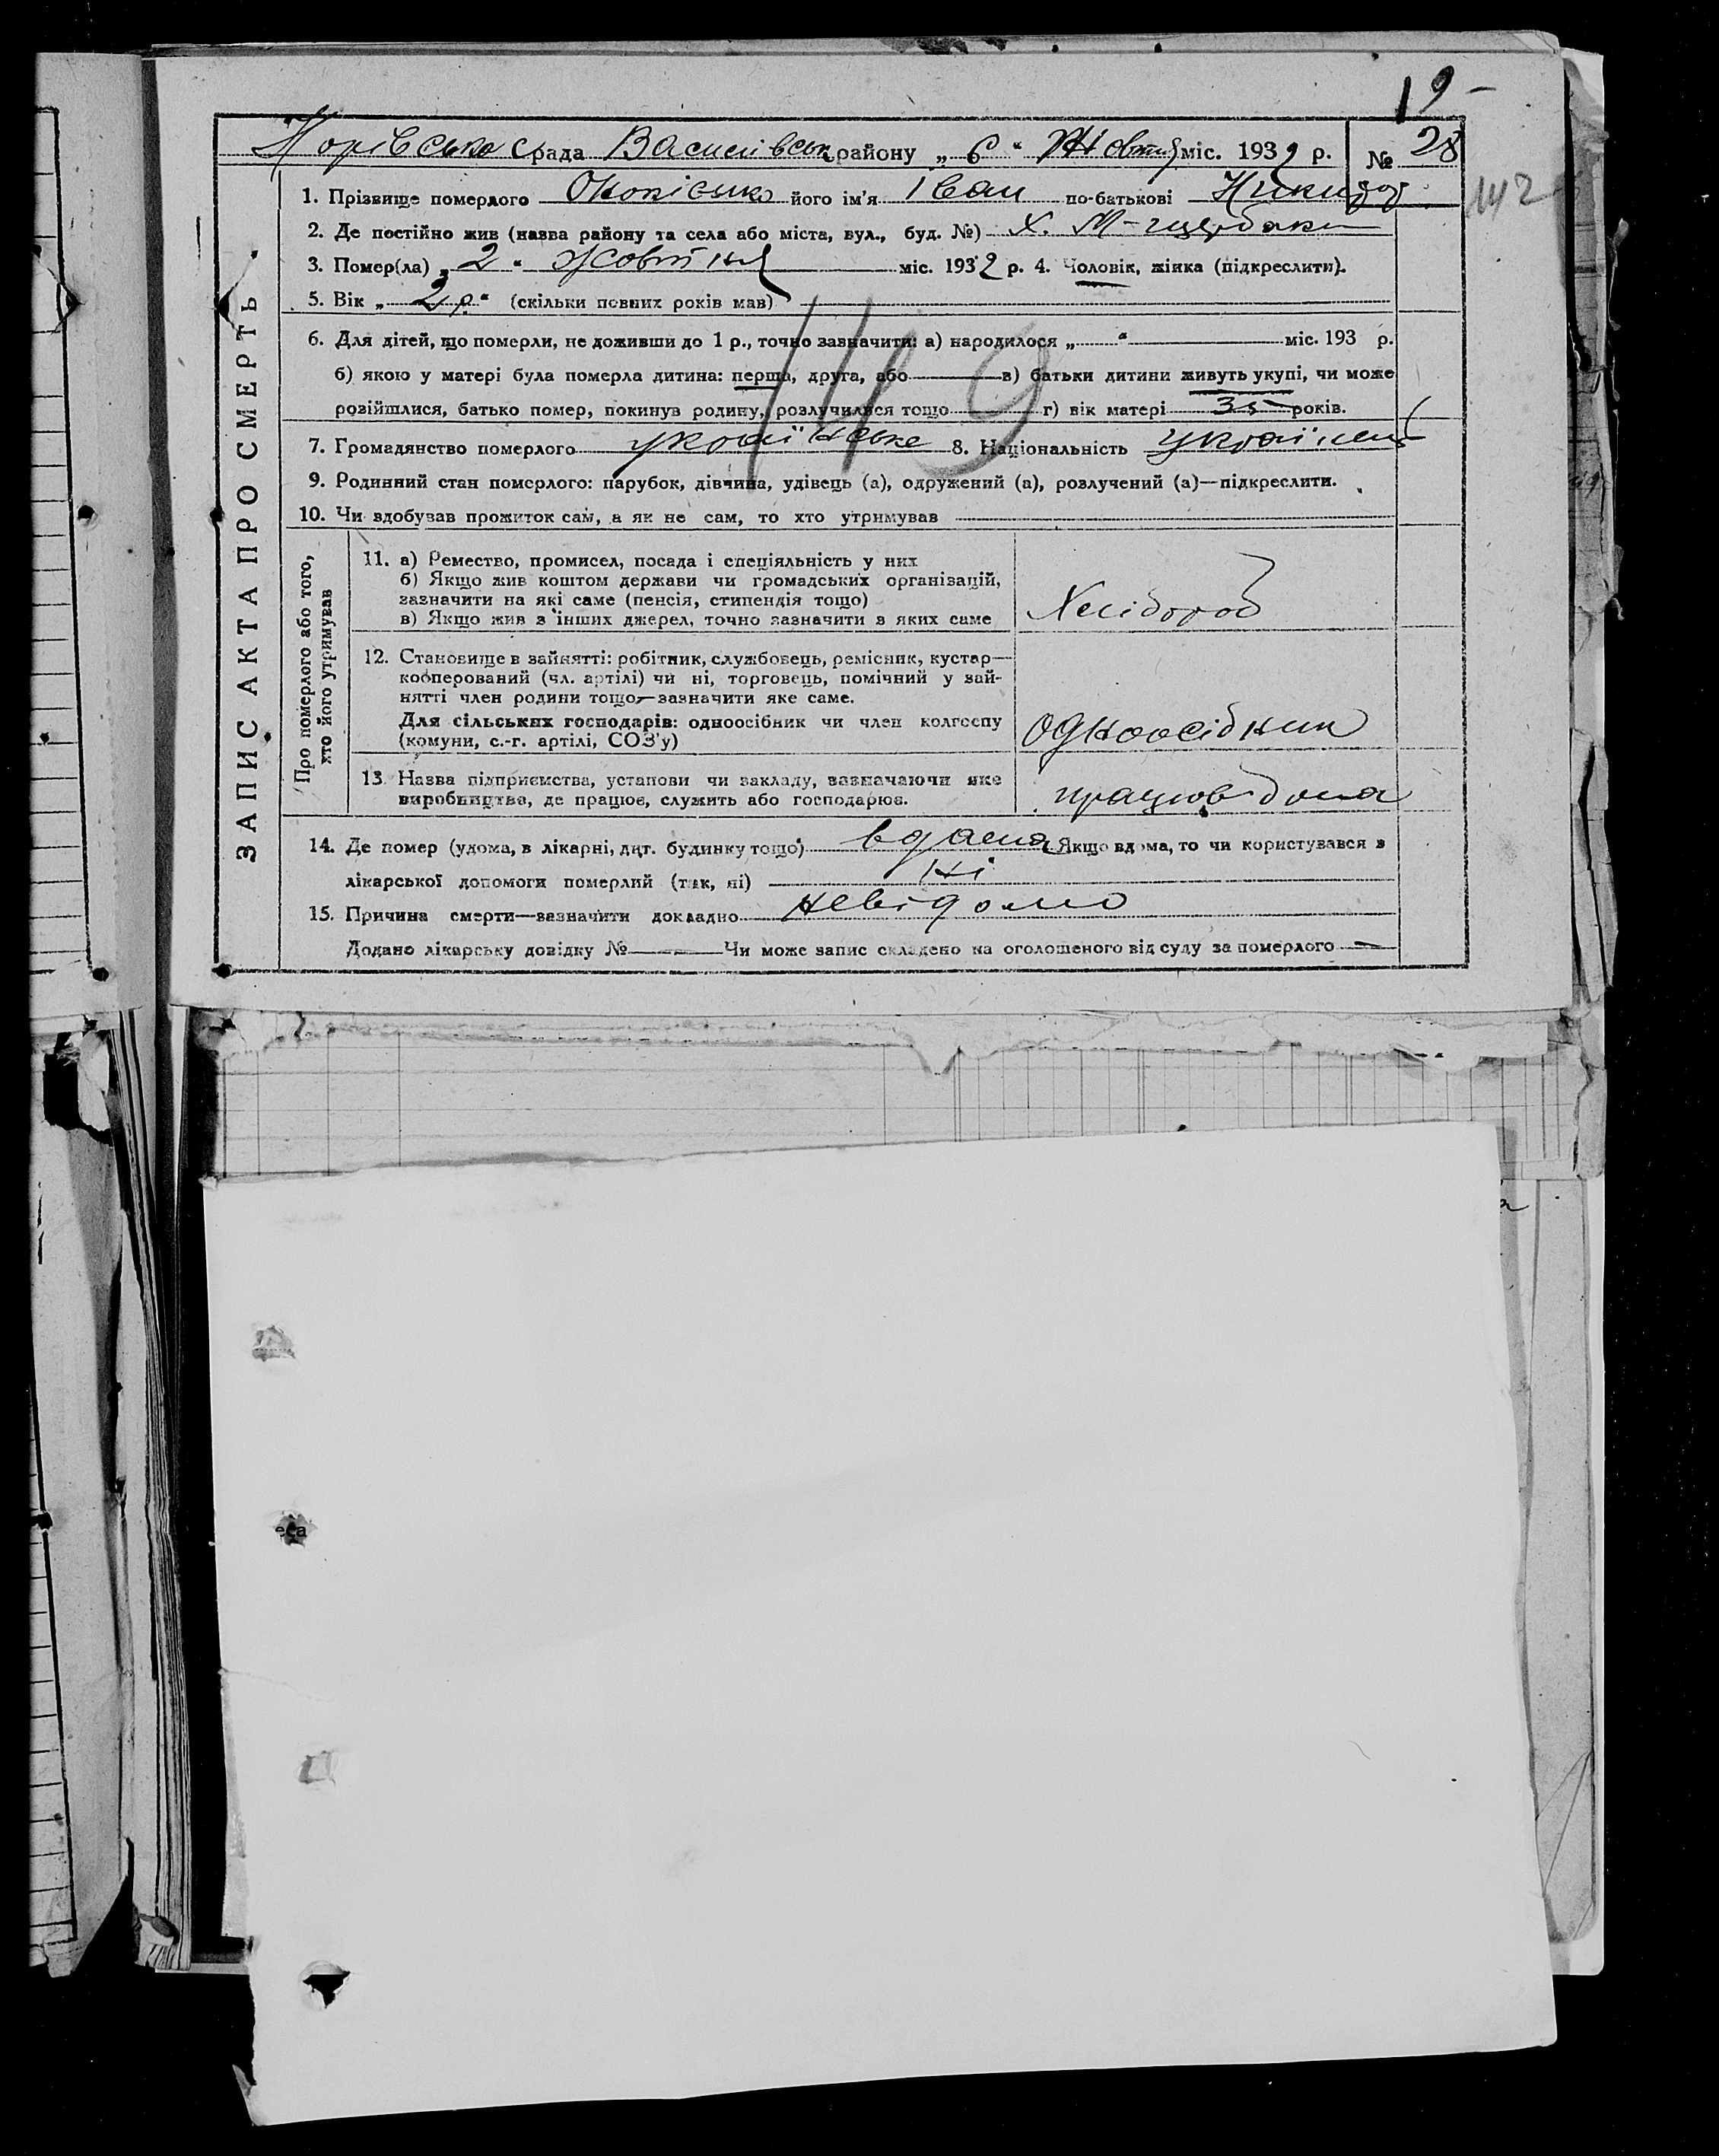 19-
рада району „ 6 “ Жовтня міс. 1932 р. № 28
142
1. Прізвище померлого його ім'я Іван по-батькові
2. Де постійно жив (назва району та села або міста, вул., буд. №) Х. М-Щербаки
3. Помер(ла) „ 2 “ Жовтня міс. 1932 р. 4. Чоловік, жінка (підкреслити).
5. Вік „ 2 р. “ (скільки повних років мав)
149
6. Для дітей, що померли, не доживши до 1 р., точно зазначити: а) народилося „ “ міс. 193 р.
б) якою у матері була померла дитина: перша, друга, або в) батьки дитини живуть укупі, чи може
розійшлися, батько помер, покинув родину, розлучилися тощо г) вік матері 35 років.
7. Громадянство померлого українське 8. Національність українец
9. Родинний стан померлого: парубок, дівчина, удівець (а), одружений (а), розлучений (а)—підкреслити.
10. Чи здобував прожиток сам, а як не сам, то хто утримував
ЗАПИС АКТА ПРО СМЕРТЬ
Про померлого або того,
хто його утримував
11. а) Ремество, промисел, посада і спеціяльність у них
б) Якщо жив коштом держави чи громадських організацій,
зазначити на які саме (пенсія, стипендія тощо)
в) Якщо жив з інших джерел, точно зазначити з яких саме
Хлібороб
12. Становище в зайнятті: робітник, службовець, ремісник, кустар—
кооперований (чл. артілі) чи ні, торговець, помічний у зай-
нятті член родини тощо,—зазначити яке саме.
Для сільських господарів: одноосібник чи член колгоспу
(комуни, с.-г. артілі, СОЗ'у)
Одноосібник
13. Назва підприємства, установи чи закладу, зазначаючи яке
виробництва, де працює, служить або господарює.
працюв дома
14. Де помер (удома, в лікарні, дит. будинку тощо) вдома Якщо вдома, то чи користувався з
лікарської допомоги померлий (так, ні) Ні
15. Причина смерти—зазначити докладно невідомо
Додано лікарську довідку № Чи може запис складено на оголошеного від суду за померлого